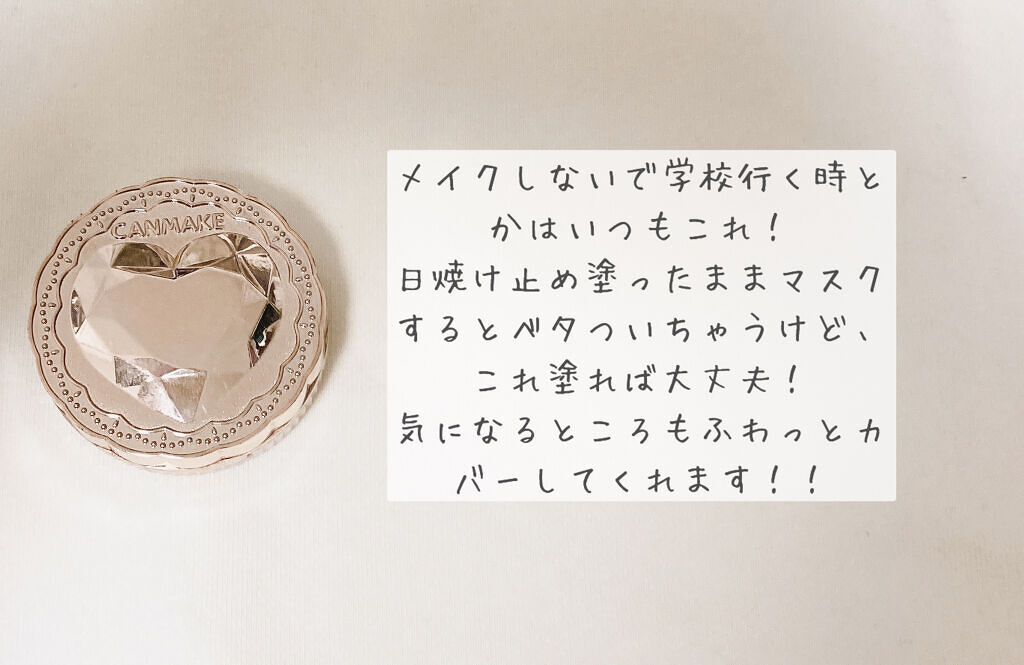 CANMAKE
メイクしないで学校行く時と
かはいつもこれ！
日焼け止め塗ったままマスク
するとベタついちゃうけど、
これ塗れば大丈夫！
気になるところもふわっとカ
バーしてくれます！！